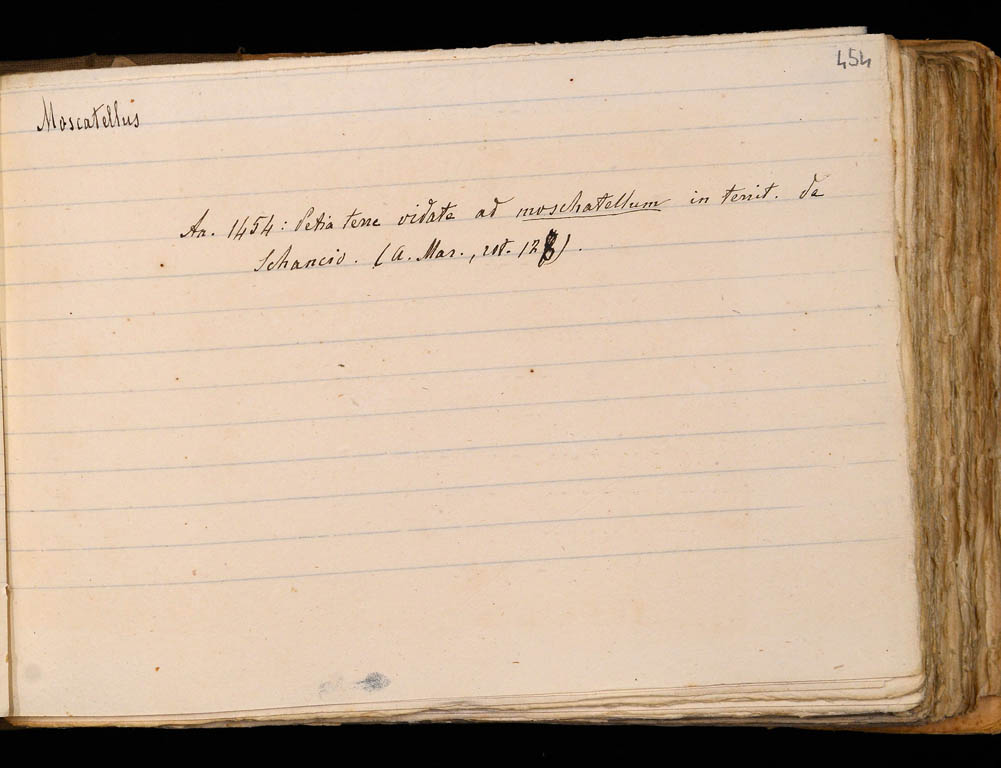 454
Moscatellus
An. 1454: Petia terre vidate ad moschatellum in territ. de
Schancio. (A. Mar., rot. 12).